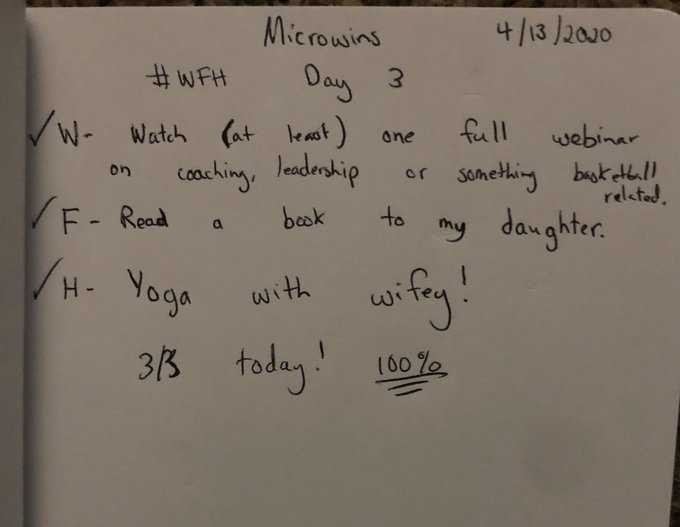 Microwins 4/13/2020
#WFH Day 3
✓ W- Watch (at least) one full webinar
on coaching, leadership or something basketball
related.
✓ F- Read a book to my daughter.
✓ H- Yoga with wifey!
3/3 today! 100%